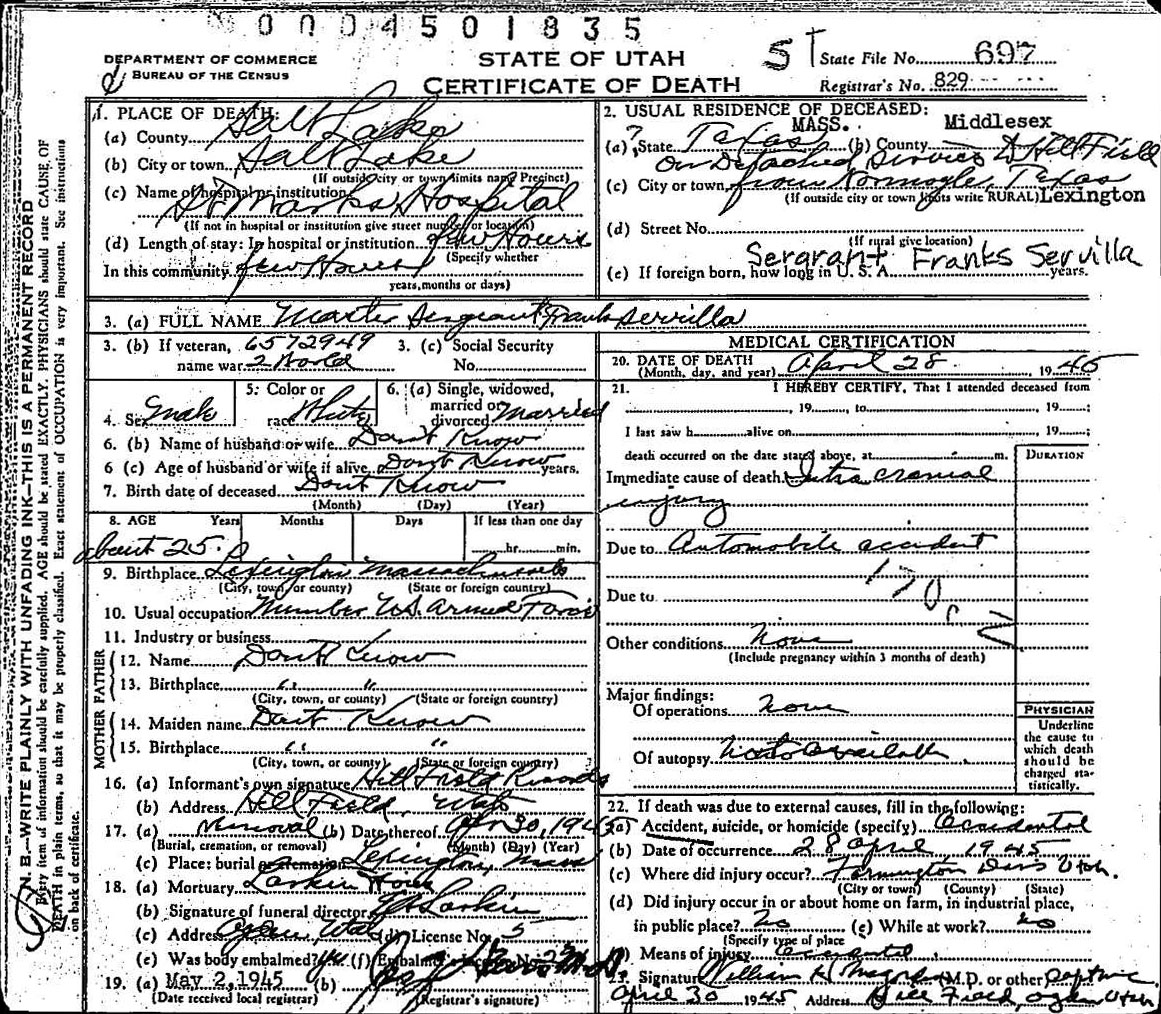 0004501835
DEPARTMENT OF COMMERCE
BUREAU OF THE CENSUS
STATE OF UTAH
CERTIFICATE OF DEATH
ST
State File No. 697
Registrar's No. 829
N. B.—WRITE PLAINLY WITH UNFADING INK—THIS IS A PERMANENT RECORD
Every item of information should be carefully supplied. AGE should be stated EXACTLY. PHYSICIANS should state CAUSE OF
DEATH in plain terms, so that it may be properly classified. Exact statement of OCCUPATION is very important. See instructions
on back of certificate.
1. PLACE OF DEATH:
(a) County Salt Lake
(b) City or town Salt Lake
(If outside city or town limits name Precinct)
(c) Name of hospital or institution
St Marks Hospital
(If not in hospital or institution give street number or location)
(d) Length of stay: In hospital or institution few Hours
(Specify whether
In this community few Hours
years, months or days)
2. USUAL RESIDENCE OF DECEASED:
MASS. Middlesex
(a) State ? Texas (b) County
On Detached Service to Hill Field
(c) City or town from Texas
(If outside city or town limits write RURAL) Lexington
(d) Street No.
(If rural give location)
Sergrant Franks Servilla
(e) If foreign born, how long in U. S. A. years.
3. (a) FULL NAME Master Sergeant Frank Servilla
3. (b) If veteran, 6572949
name war 2 World
3. (c) Social Security
No.
4. Sex male
5. Color or
race White
6. (a) Single, widowed,
married or
divorced Married
6. (b) Name of husband or wife Dont Know
6 (c) Age of husband or wife if alive Dont Know years.
7. Birth date of deceased Dont Know
(Month) (Day) (Year)
8. AGE Years Months Days If less than one day
about 25 hr. min.
9. Birthplace Lexington Massachusetts
(City, town, or county) (State or foreign country)
10. Usual occupation Member U.S. Armed Force
11. Industry or business
FATHER
12. Name Dont Know
13. Birthplace " "
(City, town, or county) (State or foreign country)
MOTHER
14. Maiden name Dont Know
15. Birthplace " "
(City, town, or county) (State or foreign country)
16. (a) Informant's own signature Hill Field Records
(b) Address Hill Field, Utah
17. (a) Removal (b) Date thereof Apr 30, 1945
(Burial, cremation, or removal) (Month) (Day) (Year)
(c) Place: burial or cremation Lexington, Mass
18. (a) Mortuary Larkin
(b) Signature of funeral director Larkin
(c) Address Ogden, Utah (d) License No. 5
(e) Was body embalmed? yes (f) Embalmer's License No.
19. (a) May 2, 1945 (b)
(Date received local registrar) (Registrar's signature)
MEDICAL CERTIFICATION
20. DATE OF DEATH April 28, 1945
(Month, day, and year)
21. I HEREBY CERTIFY, That I attended deceased from
, 19 , to , 19 ;
I last saw h alive on , 19 ;
death occurred on the date stated above, at m.
DURATION
Immediate cause of death Intra cranial
injury
Due to Automobile accident
170c
Due to
Other conditions None
(Include pregnancy within 3 months of death)
Major findings:
Of operations None
Of autopsy Not available
PHYSICIAN
Underline
the cause to
which death
should be
charged sta-
tistically.
22. If death was due to external causes, fill in the following:
(a) Accident, suicide, or homicide (specify) Accidental
(b) Date of occurrence 28 April 1945
(c) Where did injury occur? Farmington Davis Utah.
(City or town) (County) (State)
(d) Did injury occur in or about home on farm, in industrial place,
in public place? no (e) While at work? no
(Specify type of place
Means of injury accidental
Signature William H. (M.D. or other) Captain
April 30 1945 Address Hill Field, Ogden Utah